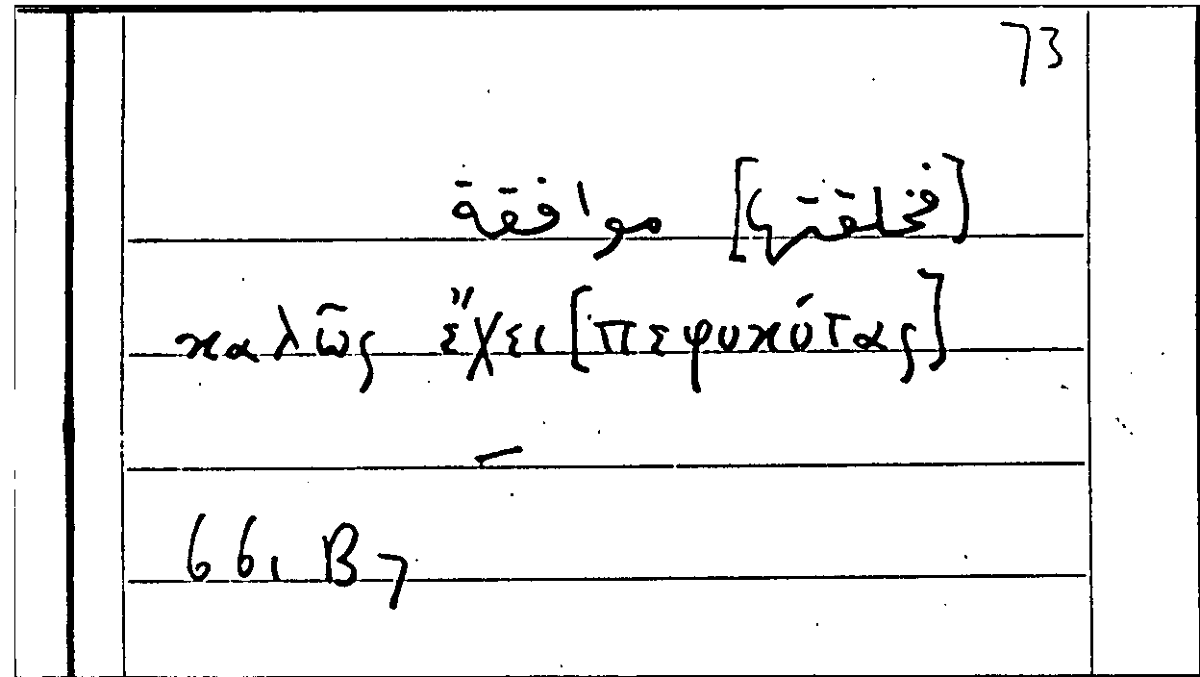 73
[فخلقتها] موافقة
καλῶς ἔχει [πεφυκότας]
–
66, B7